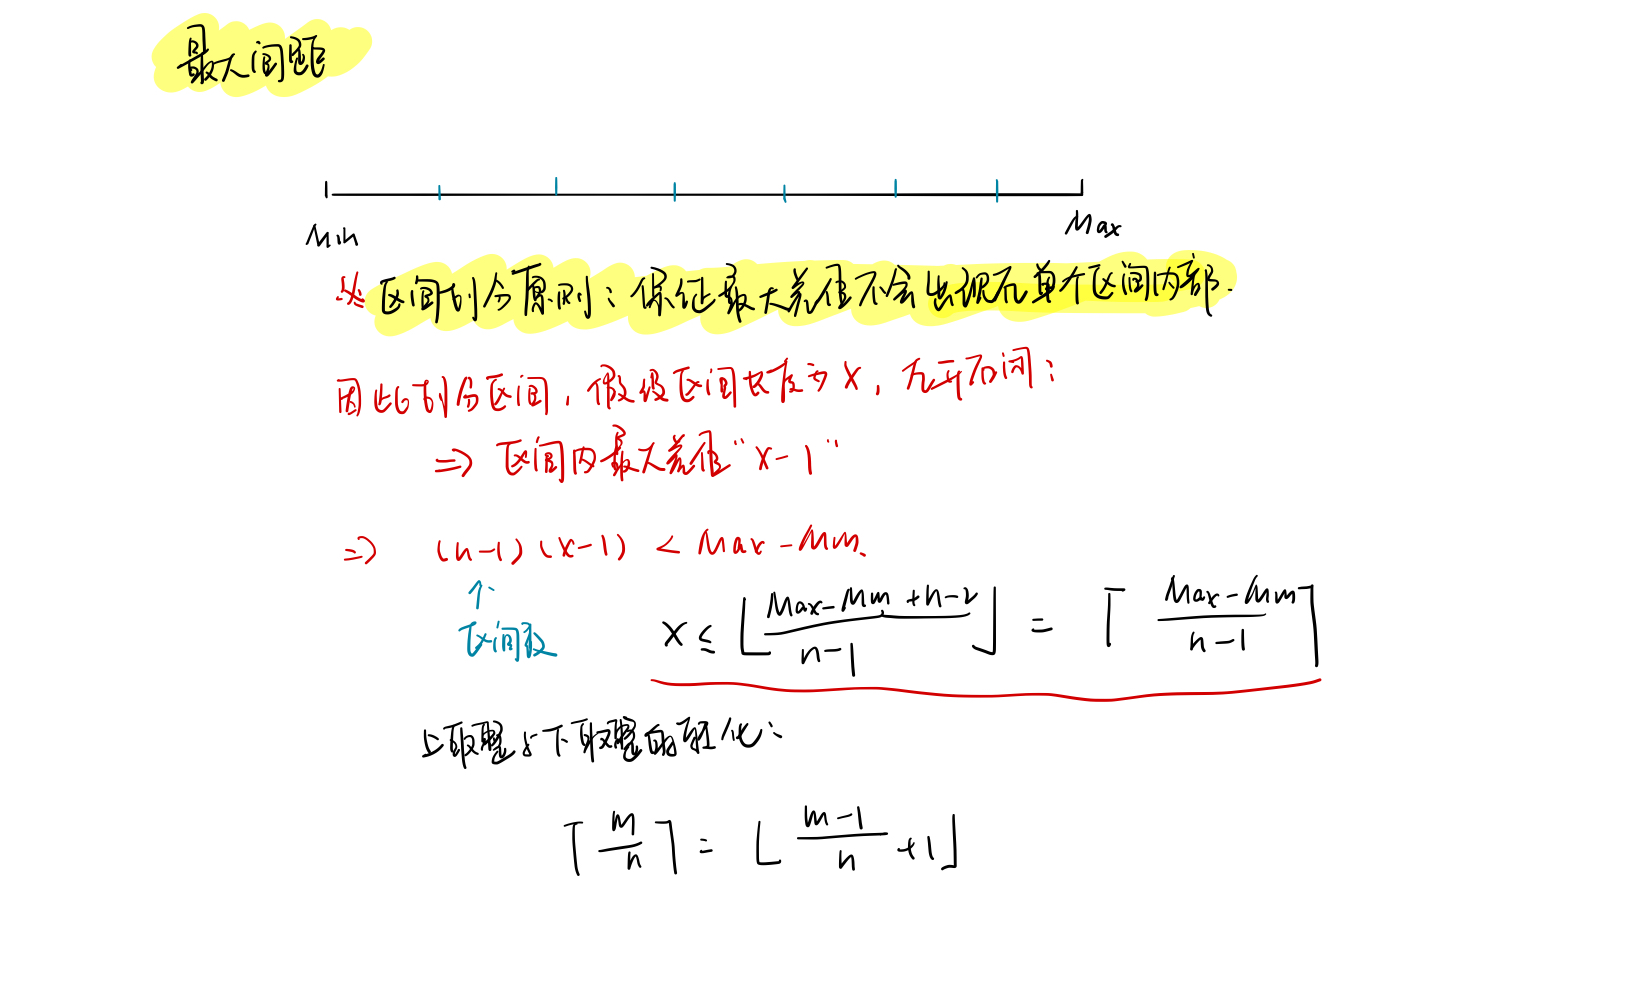 最大间距
Min Max
※ 区间划分原则：保证最大差值不会出现在单个区间内部.
因此划分区间，假设区间长度为 x，左开右闭：
=> 区间内最大差值“x-1”
=> (n-1)(x-1) < Max-Min.
↑
区间数
x ≤ ⌊(Max-Min+n-2)/(n-1)⌋ = ⌈(Max-Min)/(n-1)⌉
上取整与下取整的转化：
⌈m/n⌉ = ⌊(m-1)/n + 1⌋